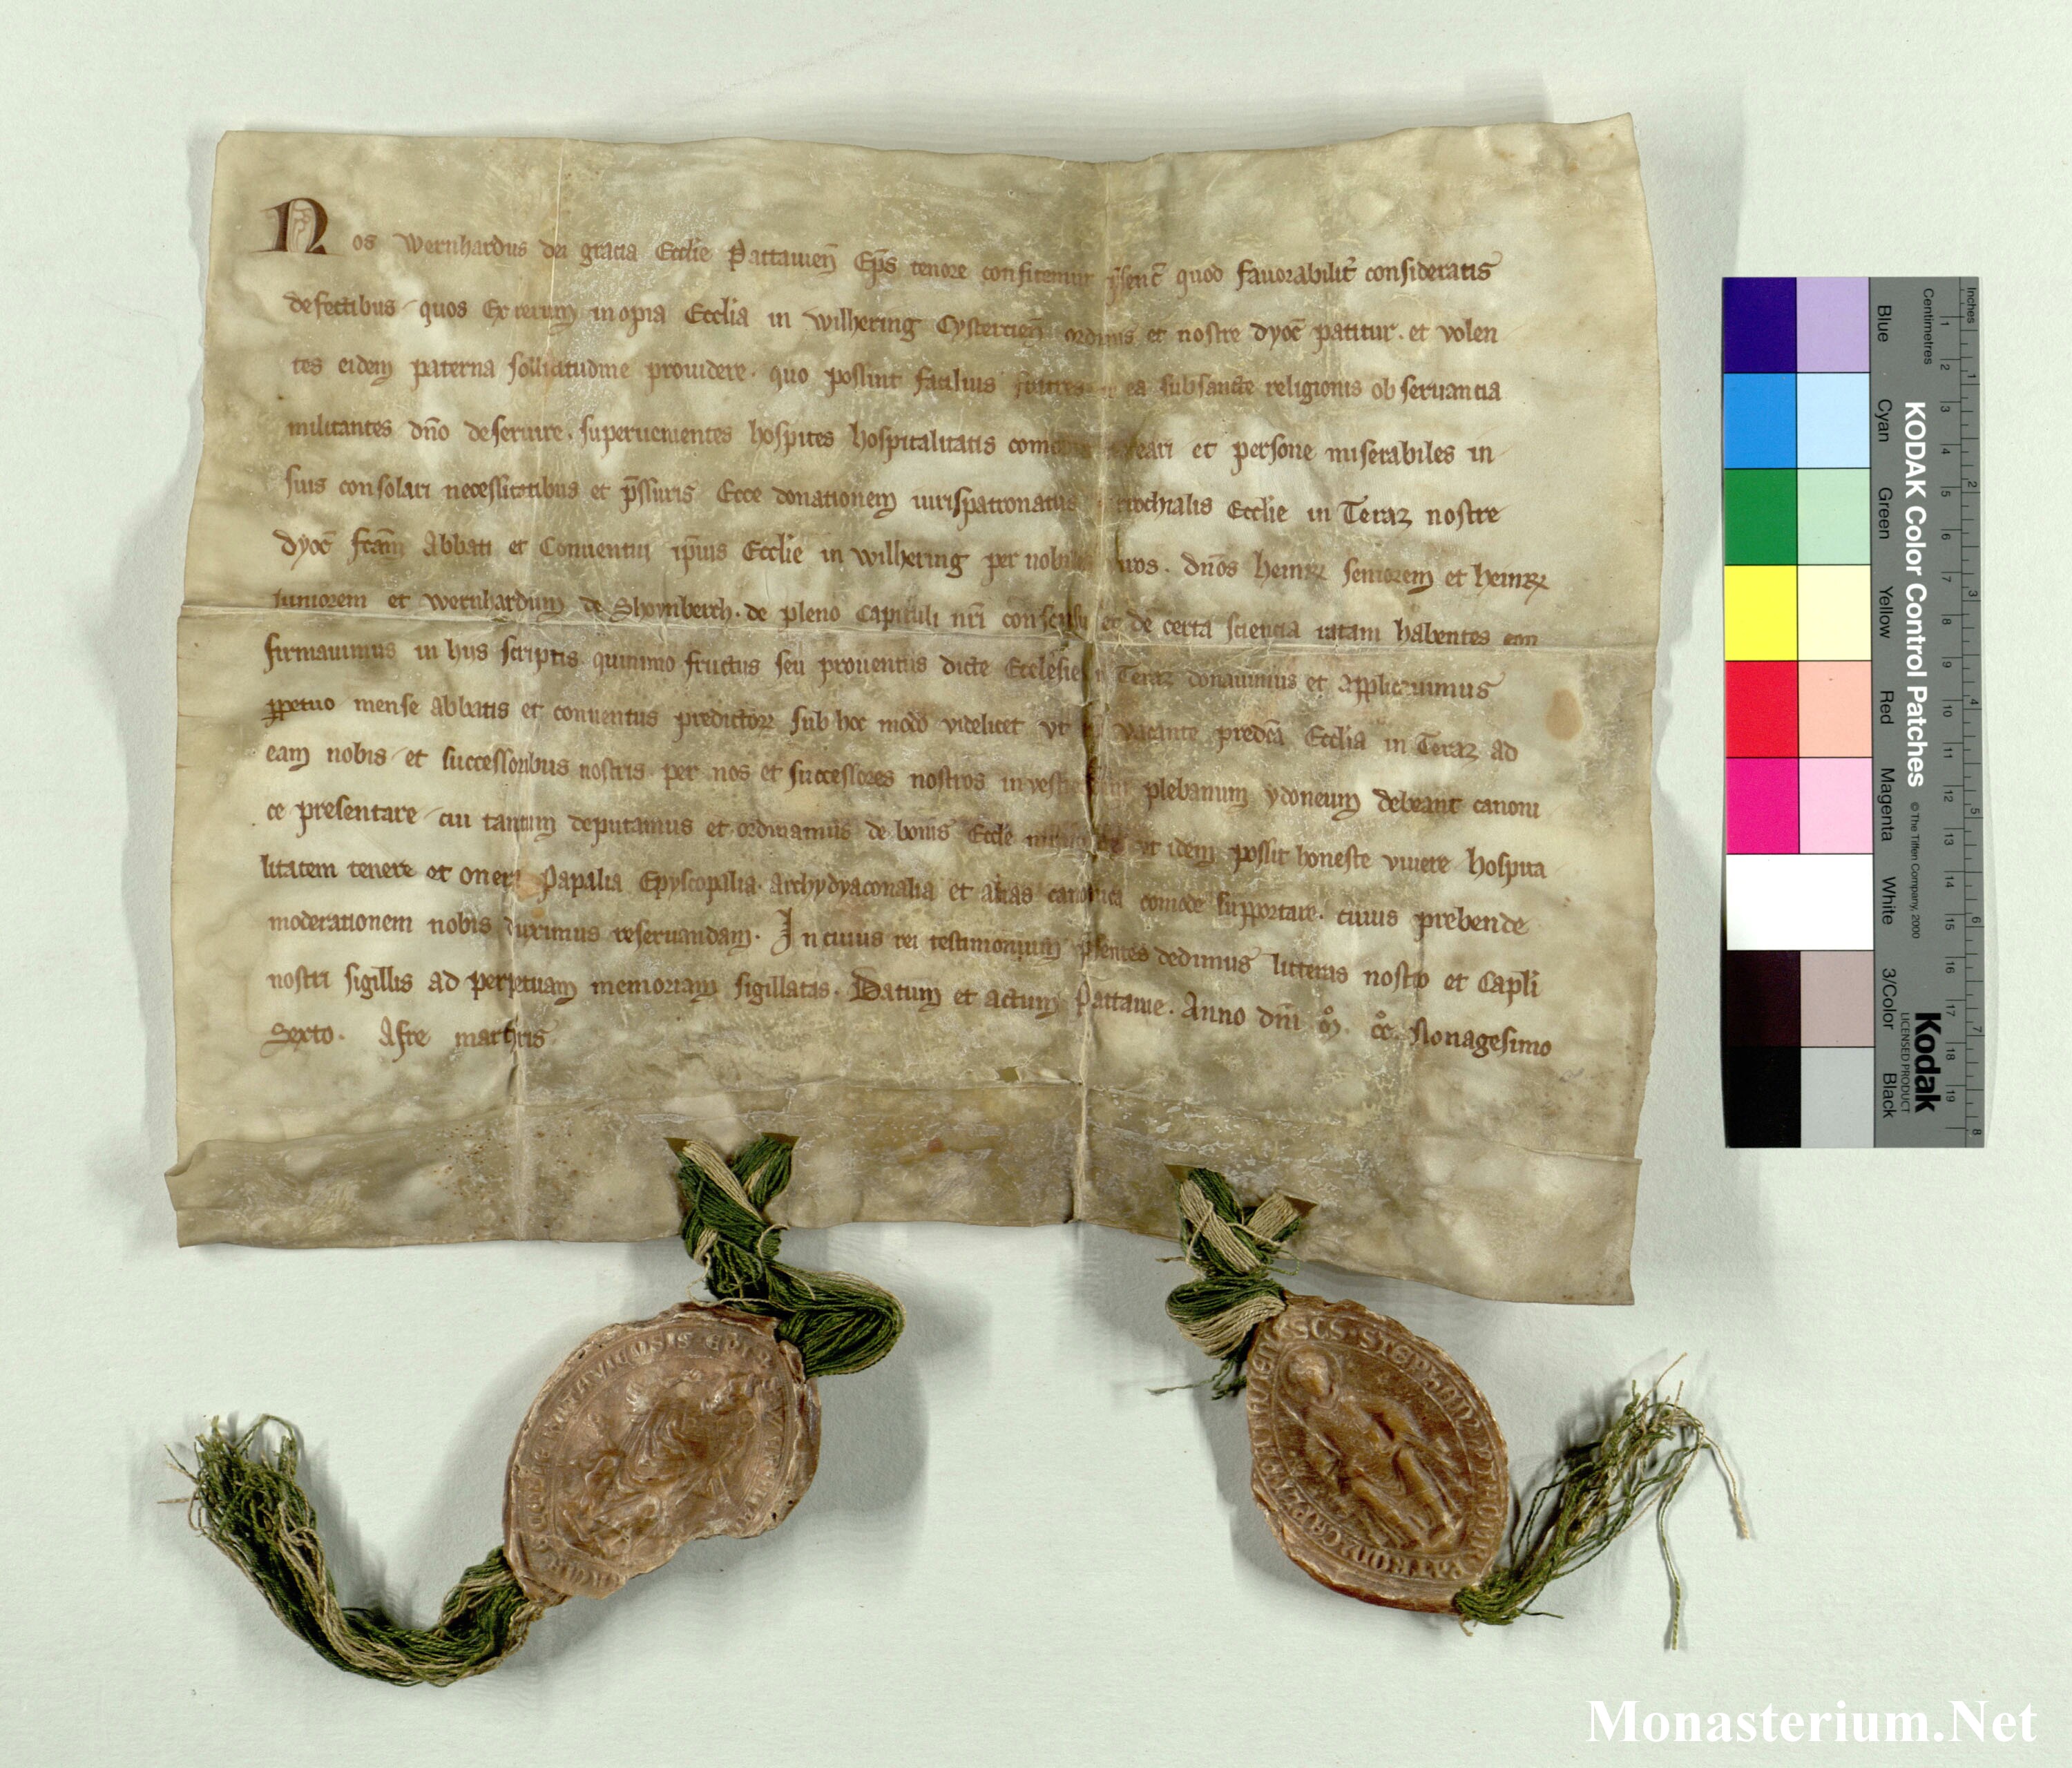 Nos Wernhardus dei gracia Ecclie Pattauien Eps tenore confitemur psenc quod fauorabilit consideratis
defectibus quos Ex rerum inopia Ecclia in Wilhering Cystercien ordinis et nostre dyoc patitur. et volen
tes eidem paterna sollicitudine prouidere. quo possint facilius fratres in ea sub sancte religionis obseruancia
militantes dno deseruire. superuenientes hospites hospitalitatis et persone miserabiles in
suis consolari necessitatibus et pssuris Ecce donationem iurispatronatus Ecclie in Teraz nostre
dyoc fcam Abbati et Conuentui ipius Ecclie in Wilhering per dnos Heinr Seniorem et Heinr
Iuniorem et Wernhardum de Shoynberch. de pleno Capituli nri consensu et de certa sciencia ratam habentes con
firmauimus in hiis scriptis. quinimo fructus seu prouentus dicte Ecclesie in Teraz donauimus et Applicuimus
ppetuo mense Abbatis et conuentus predictor sub hoc modo videlicet vt vacante predca Ecclia in Teraz ad
eam nobis et successoribus nostris per nos et successores nostros plebanum ydoneum debeant canoni
ce presentare cui tantum deputamus et ordinamus de bonis Eccle vt idem possit honeste viuere hospita
litatem tenere et onera Papalia Epyscopalia. Archydyaconalia et alias canonica comode supportare. cuius prebende
moderationem nobis duximus reseruandam. In cuius rei testimonium psentes dedimus litteras nostro et Capli
nostri sigillis ad perpetuam memoriam sigillatas. Datum et actum Pattauie. Anno dni M. CC. Nonagesimo
Sexto. Afre martiris
SCS STEPHANUS
Inches
Centimetres
1 2 3 4 5 6 7 8
1 2 3 4 5 6 7 8 9 10 11 12 13 14 15 16 17 18 19
KODAK Color Control Patches
© The Tiffen Company, 2000
Kodak
LICENSED PRODUCT
Blue
Cyan
Green
Yellow
Red
Magenta
White
3/Color
Black
Monasterium.Net